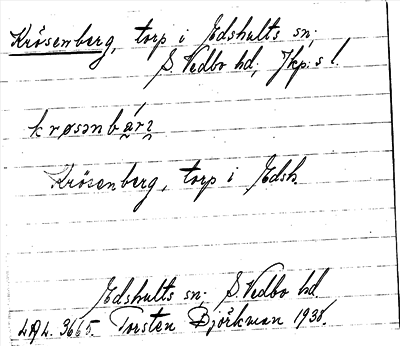 Krösenberg, torp i Edshults sn;
S. Vedbo hd; Jkp:s l.
Krösenberg, torp i Edsh.
Edshults sn; S. Vedbo hd.
3665. Torsten Björkman 1938.